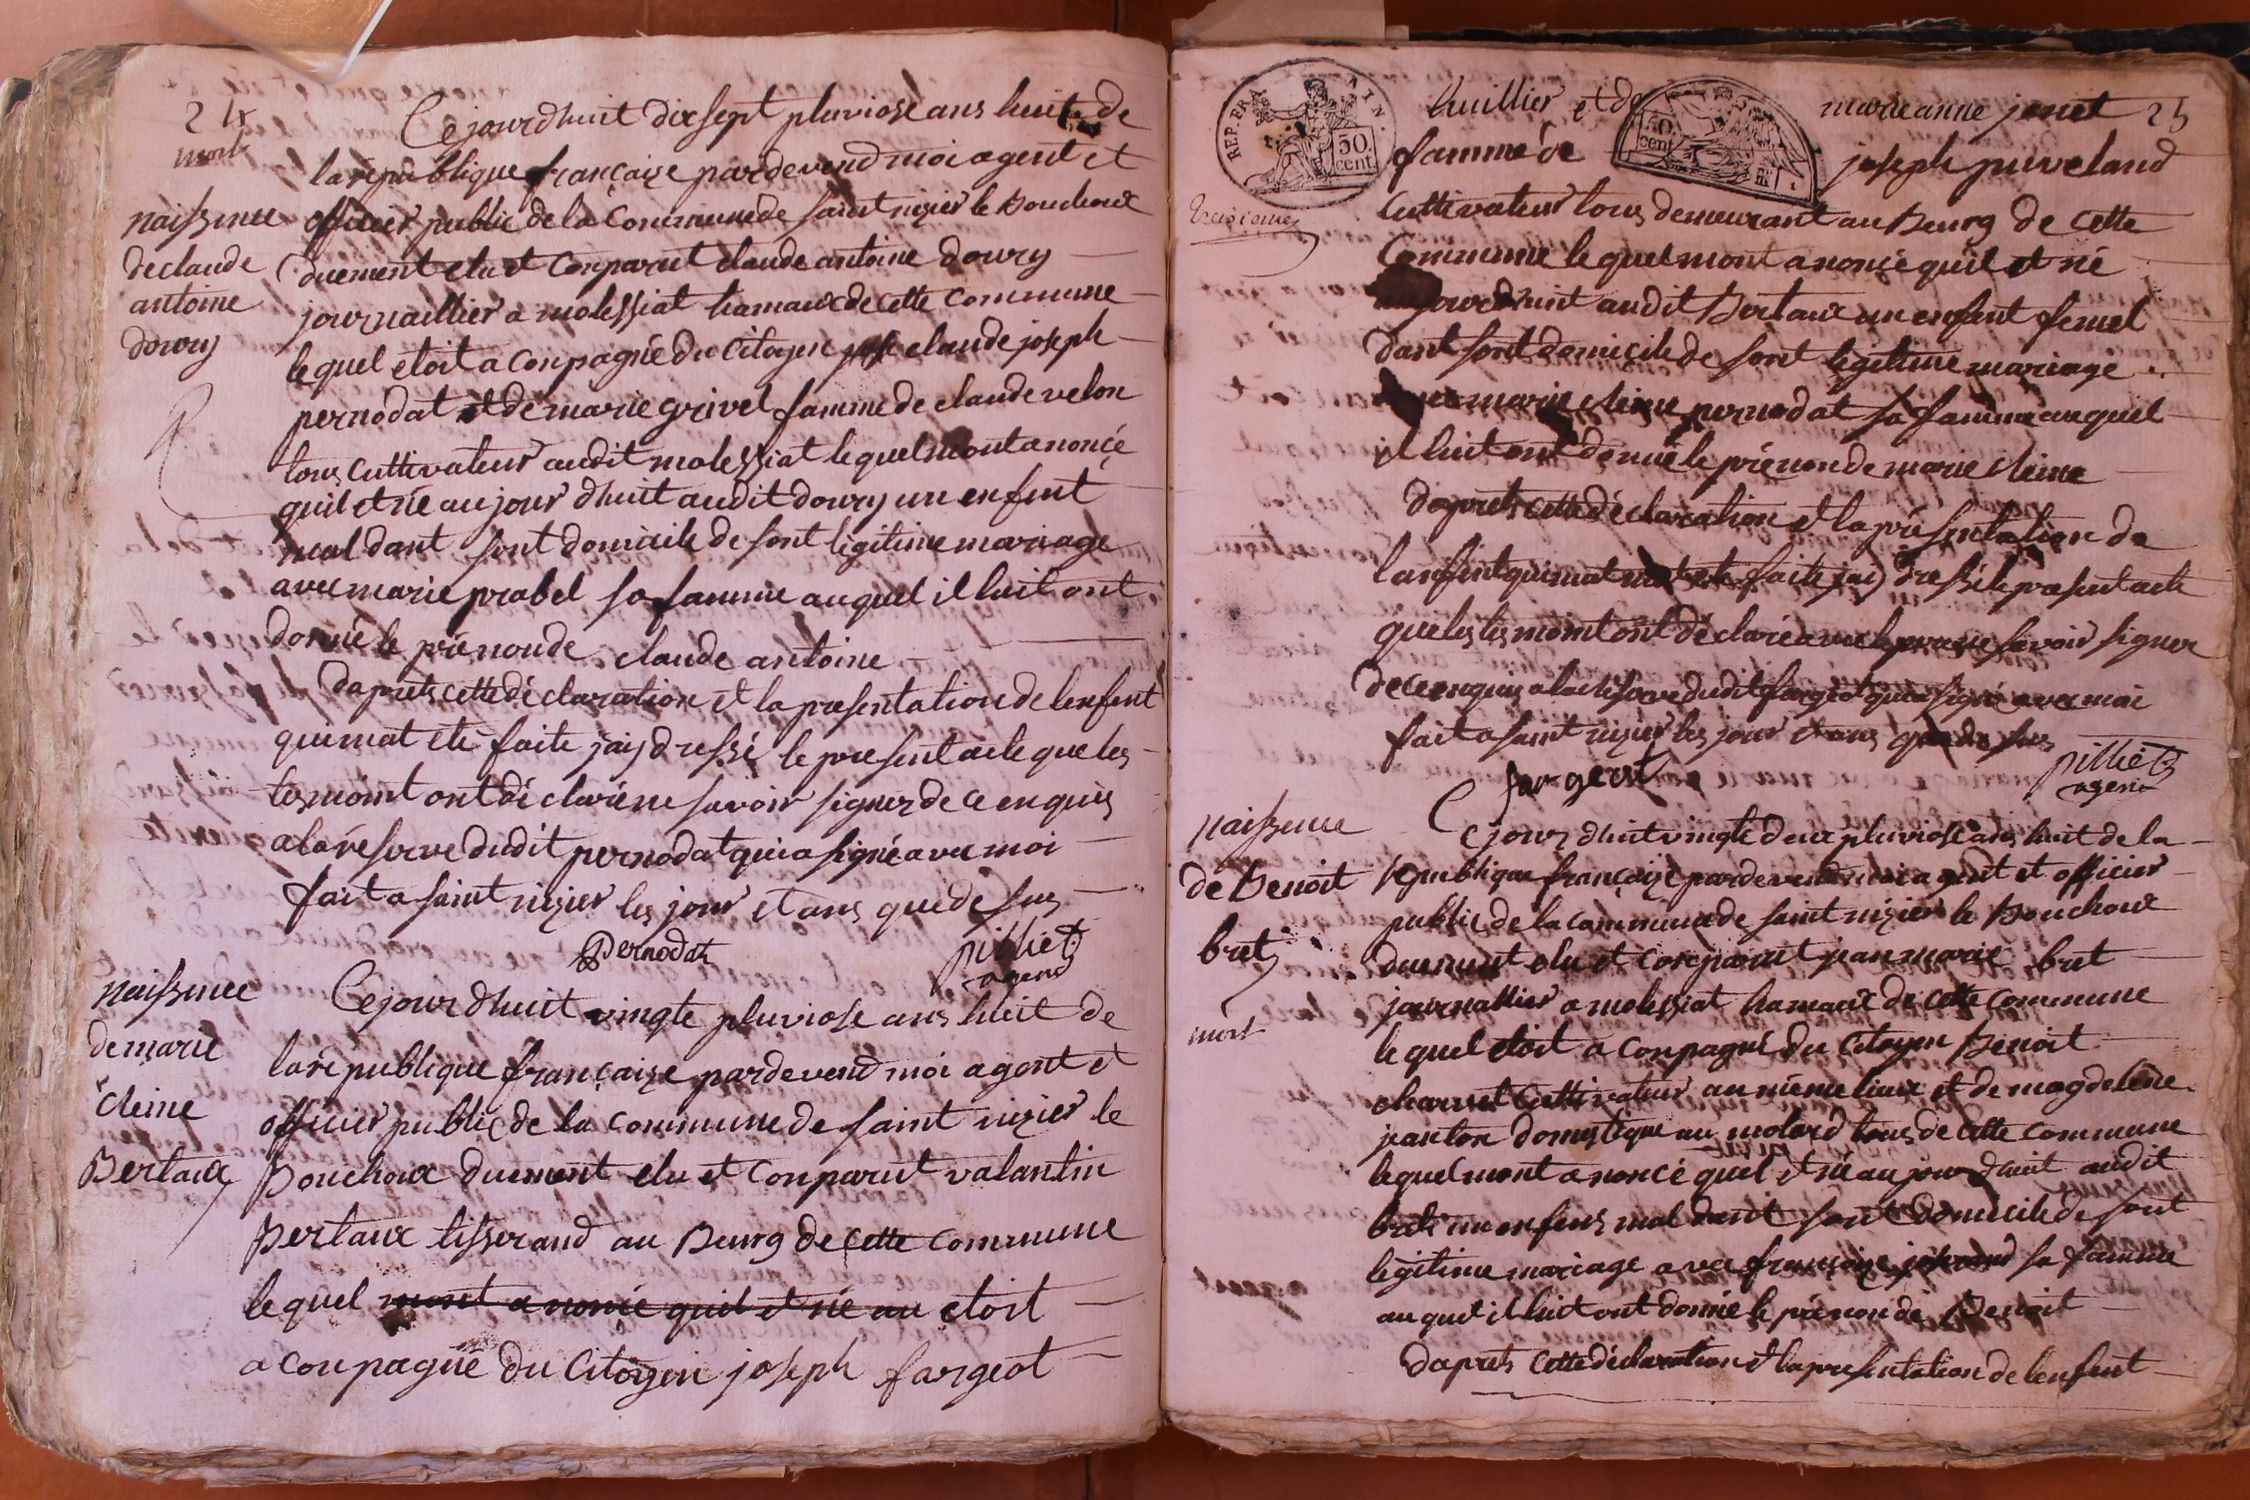 24
mort
naissance
de claude
antoine
dovry
Cejourdhuit dix sept pluviose ans huit de
la republique françaize pardevend moi agent et
officier public de la Commune de saint nizier le Bouchoux
duement elu et Conparut claude antoine dovry
journaillier a molessiat hamaux de cette commune
le quel etoit a conpagnie du Citoyen claude joseph
pernodat et de marie grivel famme de claude velon
tous Cuttivateur audit molessiat le quel mont anoncé
quil et né au jour dhuit audit dovry un enfent
mal dant sont domicile de sont legitime mariage
avec marie prabel sa famme au quel il luit ont
donné le prénon de claude antoine
daprets cette déclaration et la presentation de lenfent
qui mat eté faite jaiy dressé le present acte que les
tesmoint ont déclaré ne savoir signer de ce enquis
a la réserve dudit pernodat qui a signé avec moi
fait a saint nizier les jour et ans que de sus
Pernodat
pilliet
agend
naissance
de marie
cleine
Bertaux
Cejourdhuit vingte pluviose ans huit de
la republique françaize pardevend moi agent et
officier public de la commune de saint nizier le
Bouchoux duement elu et Conparut valantin
Bertaux tisserand au Bourg de cette commune
le quel mont a noncé quil et né au etoit
a conpagnie du Citoyen joseph fargeot
REP. FRA
50
cent.
50
cent
25
huillier et de marie anne jenet
famme de joseph puveland
Cuttivateur tous demeurant au Bourg de cette
Commune le quel mont anoncé quil et né
aujourdhuit audit Bertaux un enfent femel
dant sont domicile de sont legittime mariage
marie cleine pernodat sa famme au quel
il luit ont donné le prénon de marie cleine
daprets cette déclaration et la présentation de
lenfent qui mat eté faite jaiy dressé le present acte
que les tesmoint ont déclaré savoir signer
de ce enquis a la reserve dudit fargeot qui a signé avec moi
fait a saint nizier les jour et ans que de sus
fargeot
pilliet
agent
naissence
de Benoit
bret
mort
Cejour dhuit vingte deux pluviose ans huit de la
republique françaize pardevend moi agent et officier
public de la commune de saint nizier le Bouchoux
duement elu et conparut jean marie bret
journallier a molessiat hamaux de cette commune
le quel etoit a conpagné du Citoyen Benoit
charvet Cuttivateur au méme lieux et de magdelene
janton domestique au molard tous de cette commune
le quel mont anoncé quel et né au jour dhuit audit
bret un enfens mal dant sont domicile de sont
legitime mariage avec françoize sa famme
au quel il luit ont donné le prénon de Benoit
daprets cette déclaration et la presentation de lenfent